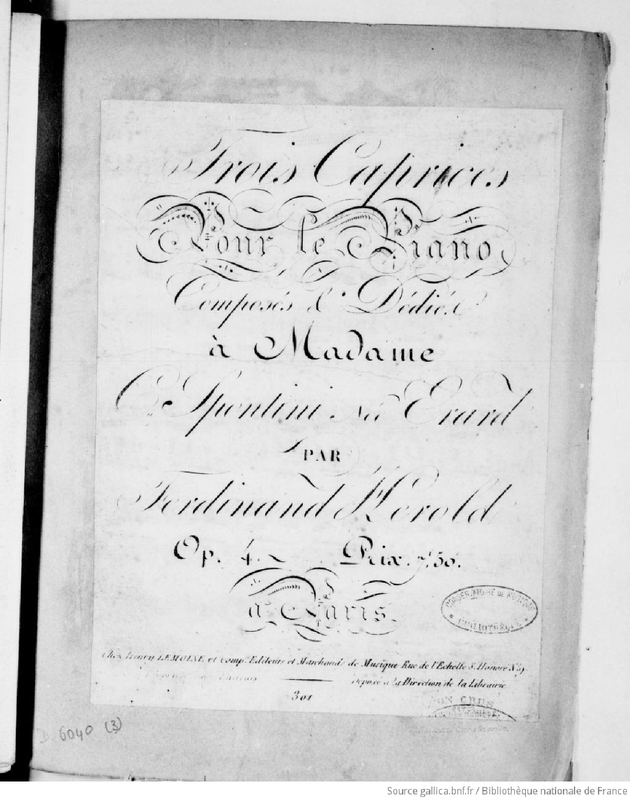 Trois Caprices
Pour le Piano
Composés & Dédiés
à Madame
Spontini née Erard
PAR
Ferdinand Herold
Op. 4. Prix. 7f50.
à Paris.
Chez Henry LEMOINE et Compe. Editeurs et Marchands de Musique Rue de l'Echelle St. Honoré No. 9
Déposé à la Direction de la Librairie
301
CONSERVATOIRE DE MUSIQUE
BIBLIOTHÈQUE
6040 (3)
Source gallica.bnf.fr / Bibliothèque nationale de France